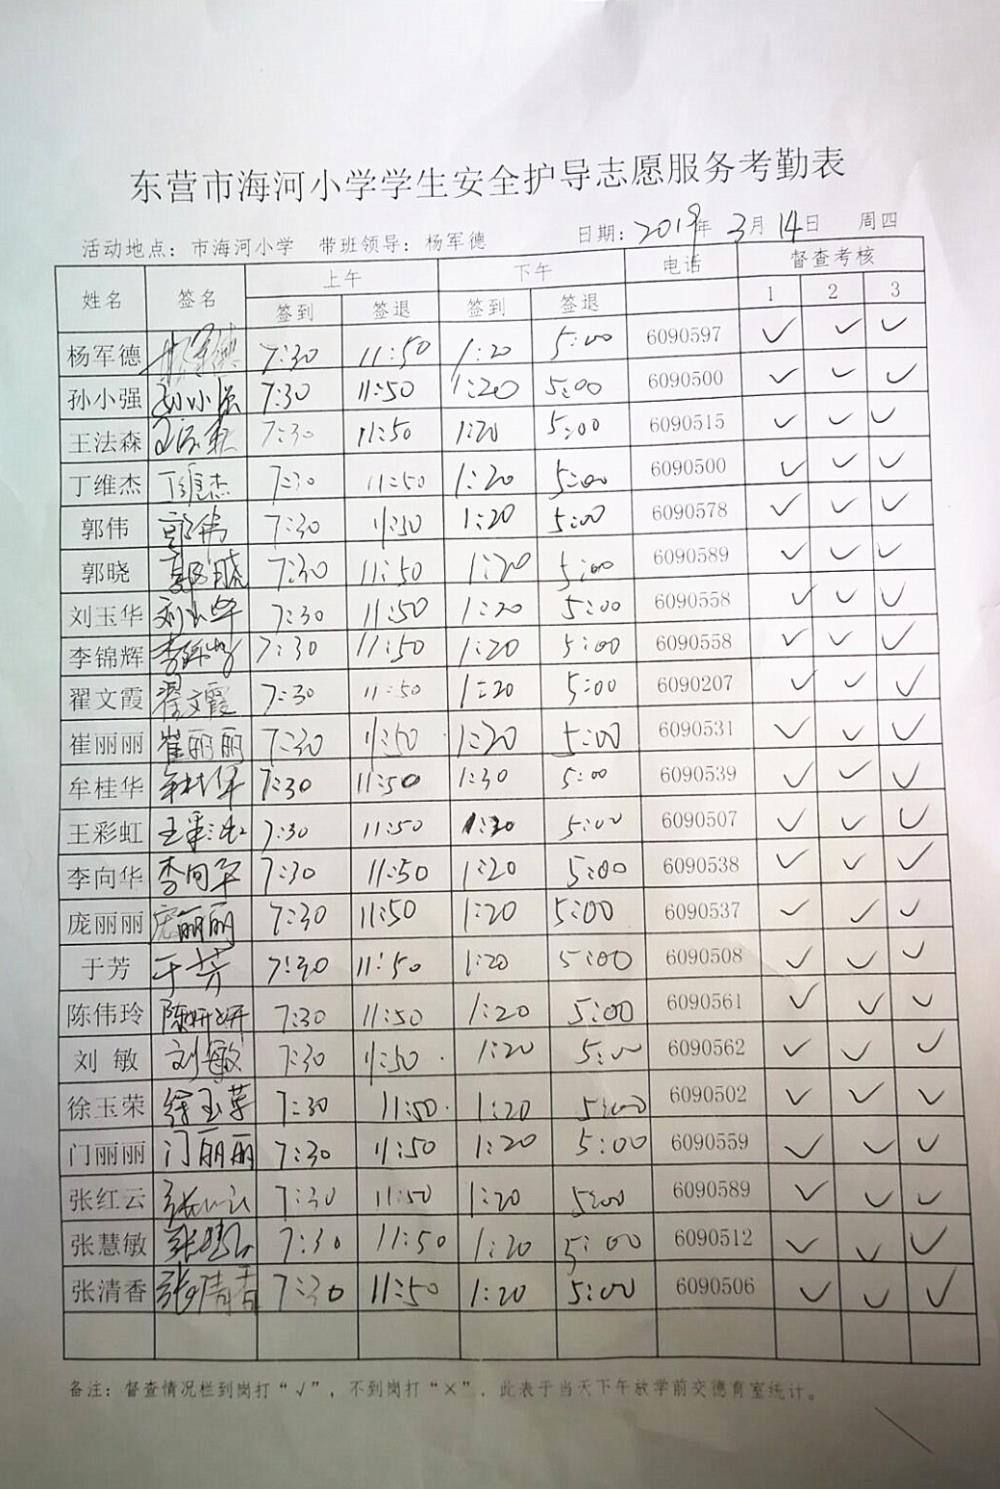 东营市海河小学学生安全护导志愿服务考勤表
活动地点：市海河小学 带班领导：杨军德 日期：2019年3月14日 周四
姓名 签名 上午 下午 电话 督查考核
签到 签退 签到 签退 1 2 3
杨军德 杨军德 7:30 11:50 1:20 5:00 6090597 ✓ ✓ ✓
孙小强 孙小强 7:30 11:50 1:20 5:00 6090500 ✓ ✓ ✓
王法森 王法森 7:30 11:50 1:20 5:00 6090515 ✓ ✓ ✓
丁维杰 丁维杰 7:30 11:50 1:20 5:00 6090500 ✓ ✓ ✓
郭伟 郭伟 7:30 11:50 1:20 5:00 6090578 ✓ ✓ ✓
郭晓 郭晓 7:30 11:50 1:20 5:00 6090589 ✓ ✓ ✓
刘玉华 刘玉华 7:30 11:50 1:20 5:00 6090558 ✓ ✓ ✓
李锦辉 李锦辉 7:30 11:50 1:20 5:00 6090558 ✓ ✓ ✓
翟文霞 翟文霞 7:30 11:50 1:20 5:00 6090207 ✓ ✓ ✓
崔丽丽 崔丽丽 7:30 11:50 1:20 5:00 6090531 ✓ ✓ ✓
牟桂华 牟桂华 7:30 11:50 1:30 5:00 6090539 ✓ ✓ ✓
王彩虹 王彩虹 7:30 11:50 1:20 5:00 6090507 ✓ ✓ ✓
李向华 李向华 7:30 11:50 1:20 5:00 6090538 ✓ ✓ ✓
庞丽丽 庞丽丽 7:30 11:50 1:20 5:00 6090537 ✓ ✓ ✓
于芳 于芳 7:30 11:50 1:20 5:00 6090508 ✓ ✓ ✓
陈伟玲 7:30 11:50 1:20 5:00 6090561 ✓ ✓ ✓
刘 敏 刘敏 7:30 11:50 1:20 5:00 6090562 ✓ ✓ ✓
徐玉荣 徐玉荣 7:30 11:50 1:20 5:00 6090502 ✓ ✓ ✓
门丽丽 门丽丽 7:30 11:50 1:20 5:00 6090559 ✓ ✓ ✓
张红云 张红云 7:30 11:50 1:20 5:00 6090589 ✓ ✓ ✓
张慧敏 7:30 11:50 1:20 5:00 6090512 ✓ ✓ ✓
张清香 张清香 7:30 11:50 1:20 5:00 6090506 ✓ ✓ ✓
备注：督查情况栏到岗打“√”，不到岗打“×”，此表于当天下午放学前交德育室统计。